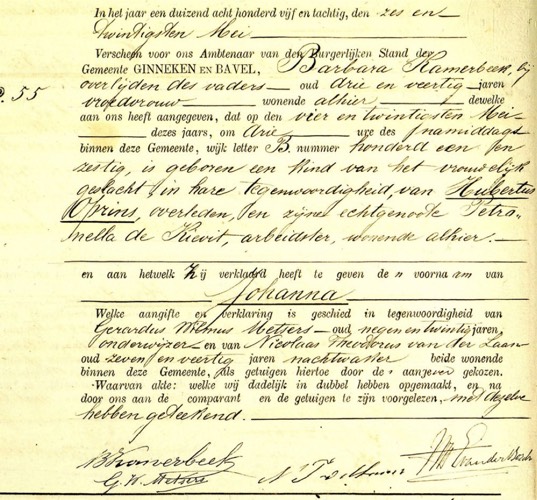 In het jaar een duizend acht honderd vijf en tachtig, den zes en
twintigsten Mei
Verscheen voor ons Ambtenaar van den Burgerlijken Stand der
Gemeente GINNEKEN EN BAVEL, Barbara Kamerbeek, bij
overlijden des vaders oud drie en veertig jaren
55
vroedvrouw wonende alhier dewelke
aan ons heeft aangegeven, dat op den vier en twintigsten Mei
dezes jaars, om drie ure des namiddags
binnen deze Gemeente, wijk letter B. nummer honderd een en
zestig, is geboren een kind van het vrouwelijk
geslacht, in hare tegenwoordigheid, van Hubertus
Oprins, overleden, en zijne echtgenoote Petro-
nella de Kievit, arbeidster, wonende alhier.
en aan hetwelk Zij verklaard heeft te geven den voornaam van
Johanna
Welke aangifte en verklaring is geschied in tegenwoordigheid van
Gerardus Wilmus Metsers oud negen en twintig jaren,
onderwijzer en van Nicolaas Theodorus van der Laan
oud zeven en veertig jaren nachtwaker beide wonende
binnen deze Gemeente, als getuigen hiertoe door de aangever gekozen.
Waarvan akte: welke wij dadelijk in dubbel hebben opgemaakt, en na
door ons aan de comparant en de getuigen te zijn voorgelezen, met dezelve
hebben geteekend.
B Kamerbeek
G. W. Metsers